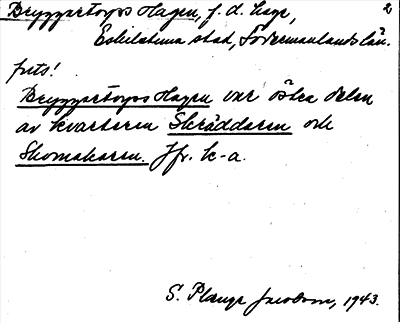 Bryggartorps Hagen, f. d. hage, 2
Eskilstuna stad, Södermanlands län.
forts!
Bryggartorps Hagen var östra delen
av kvarteren Skräddaren och
Skomakaren. Jfr. k-a.
S. Plange Jacobson, 1943.